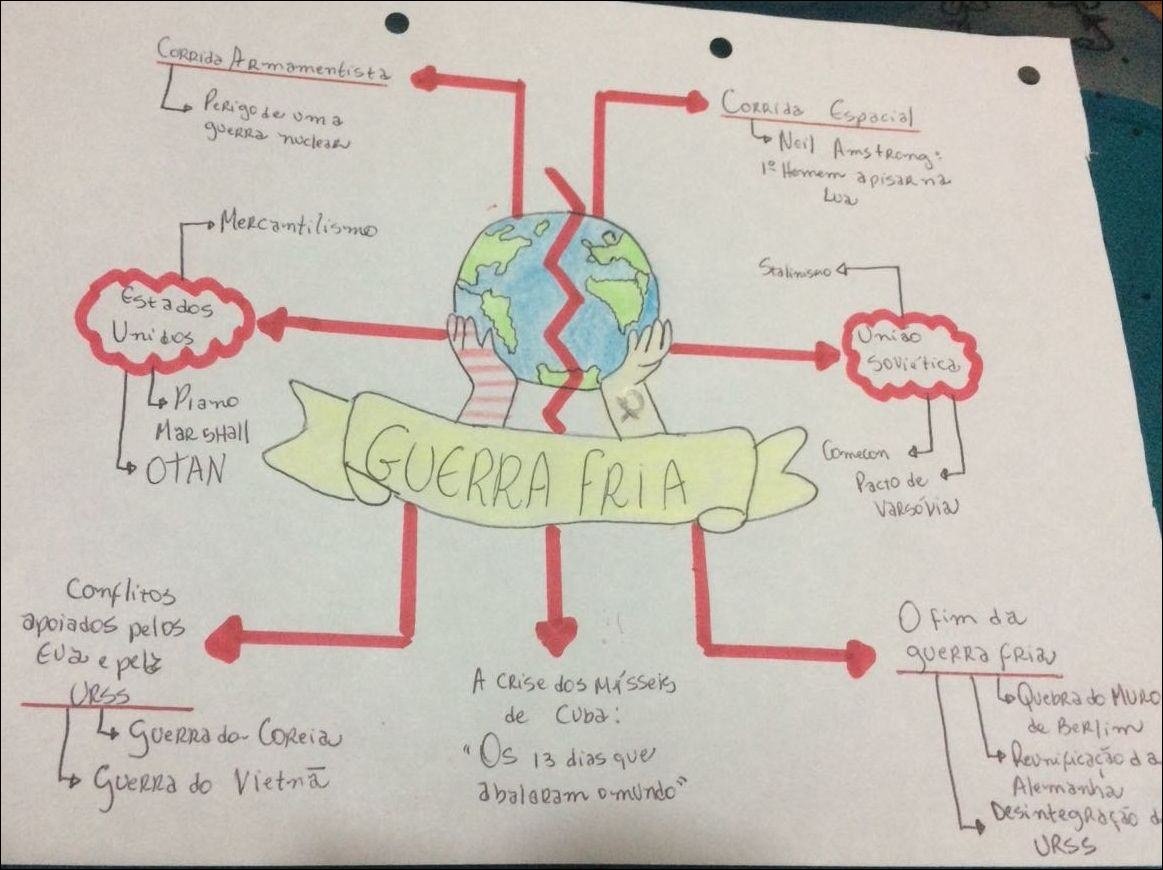 Corrida Armamentista
Perigo de uma
guerra nuclear
Corrida Espacial
Neil Amstrong:
1º Homem a pisar na
Lua
Mercantilismo
Estados
Unidos
Plano
Marshall
OTAN
Stalinismo
União
Soviética
Comecon
Pacto de
Varsóvia
GUERRA FRIA
Conflitos
apoiados pelos
EUA e pela
URSS
Guerra da Coreia
Guerra do Vietnã
A crise dos Mísseis
de Cuba:
"Os 13 dias que
abalaram o mundo"
O fim da
guerra fria
Quebra do Muro
de Berlim
Reunificação da
Alemanha
Desintegração d
URSS